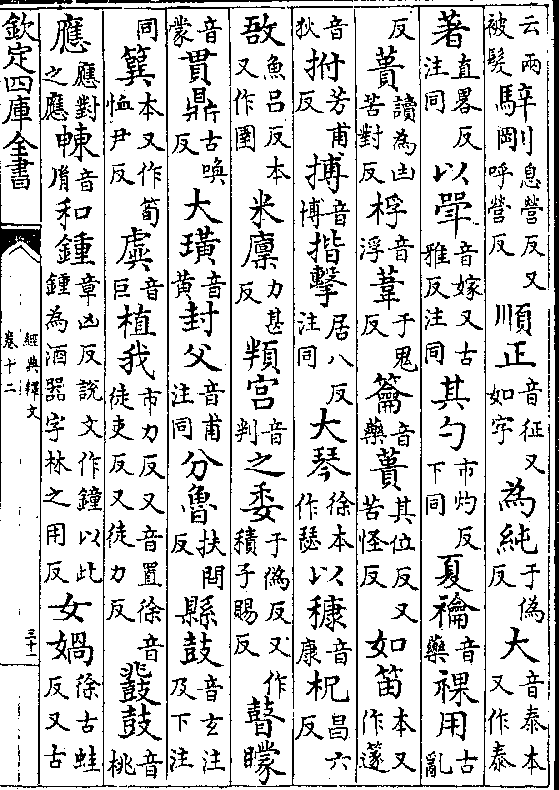 云兩被髮騂剛息營反又呼營反順正音征又如字為純于偽反大音泰本又作泰
著直畧反注同以斝音嫁又古雅反注同其勺市灼反下同夏禴音藥祼用古亂
反蕢讀為凷苦對反桴音浮葦于鬼反籥音藥蕢其位反又苦怪反如笛本又作篴
音狄拊芳甫反搏音博揩擊居八反注同大琴徐本作瑟以穅音康柷昌六反
敔魚呂反本又作圉米廩力甚反頖宮音判之委于偽反又作積子賜反瞽矇
音蒙貫鼎古喚反大璜音黃封父音甫注同分魯扶問反縣鼓音玄注及下注
同簨本又作筍恤尹反虡音巨植我市力反又音置徐音徒吏反又徒力反鼗鼓音桃
應應對之應朄音胤和鍾章凶反說文作鐘以此鍾為酒器字林之用反女媧徐古蛙反又古
欽定四庫全書
經典釋文
卷十二
三十一